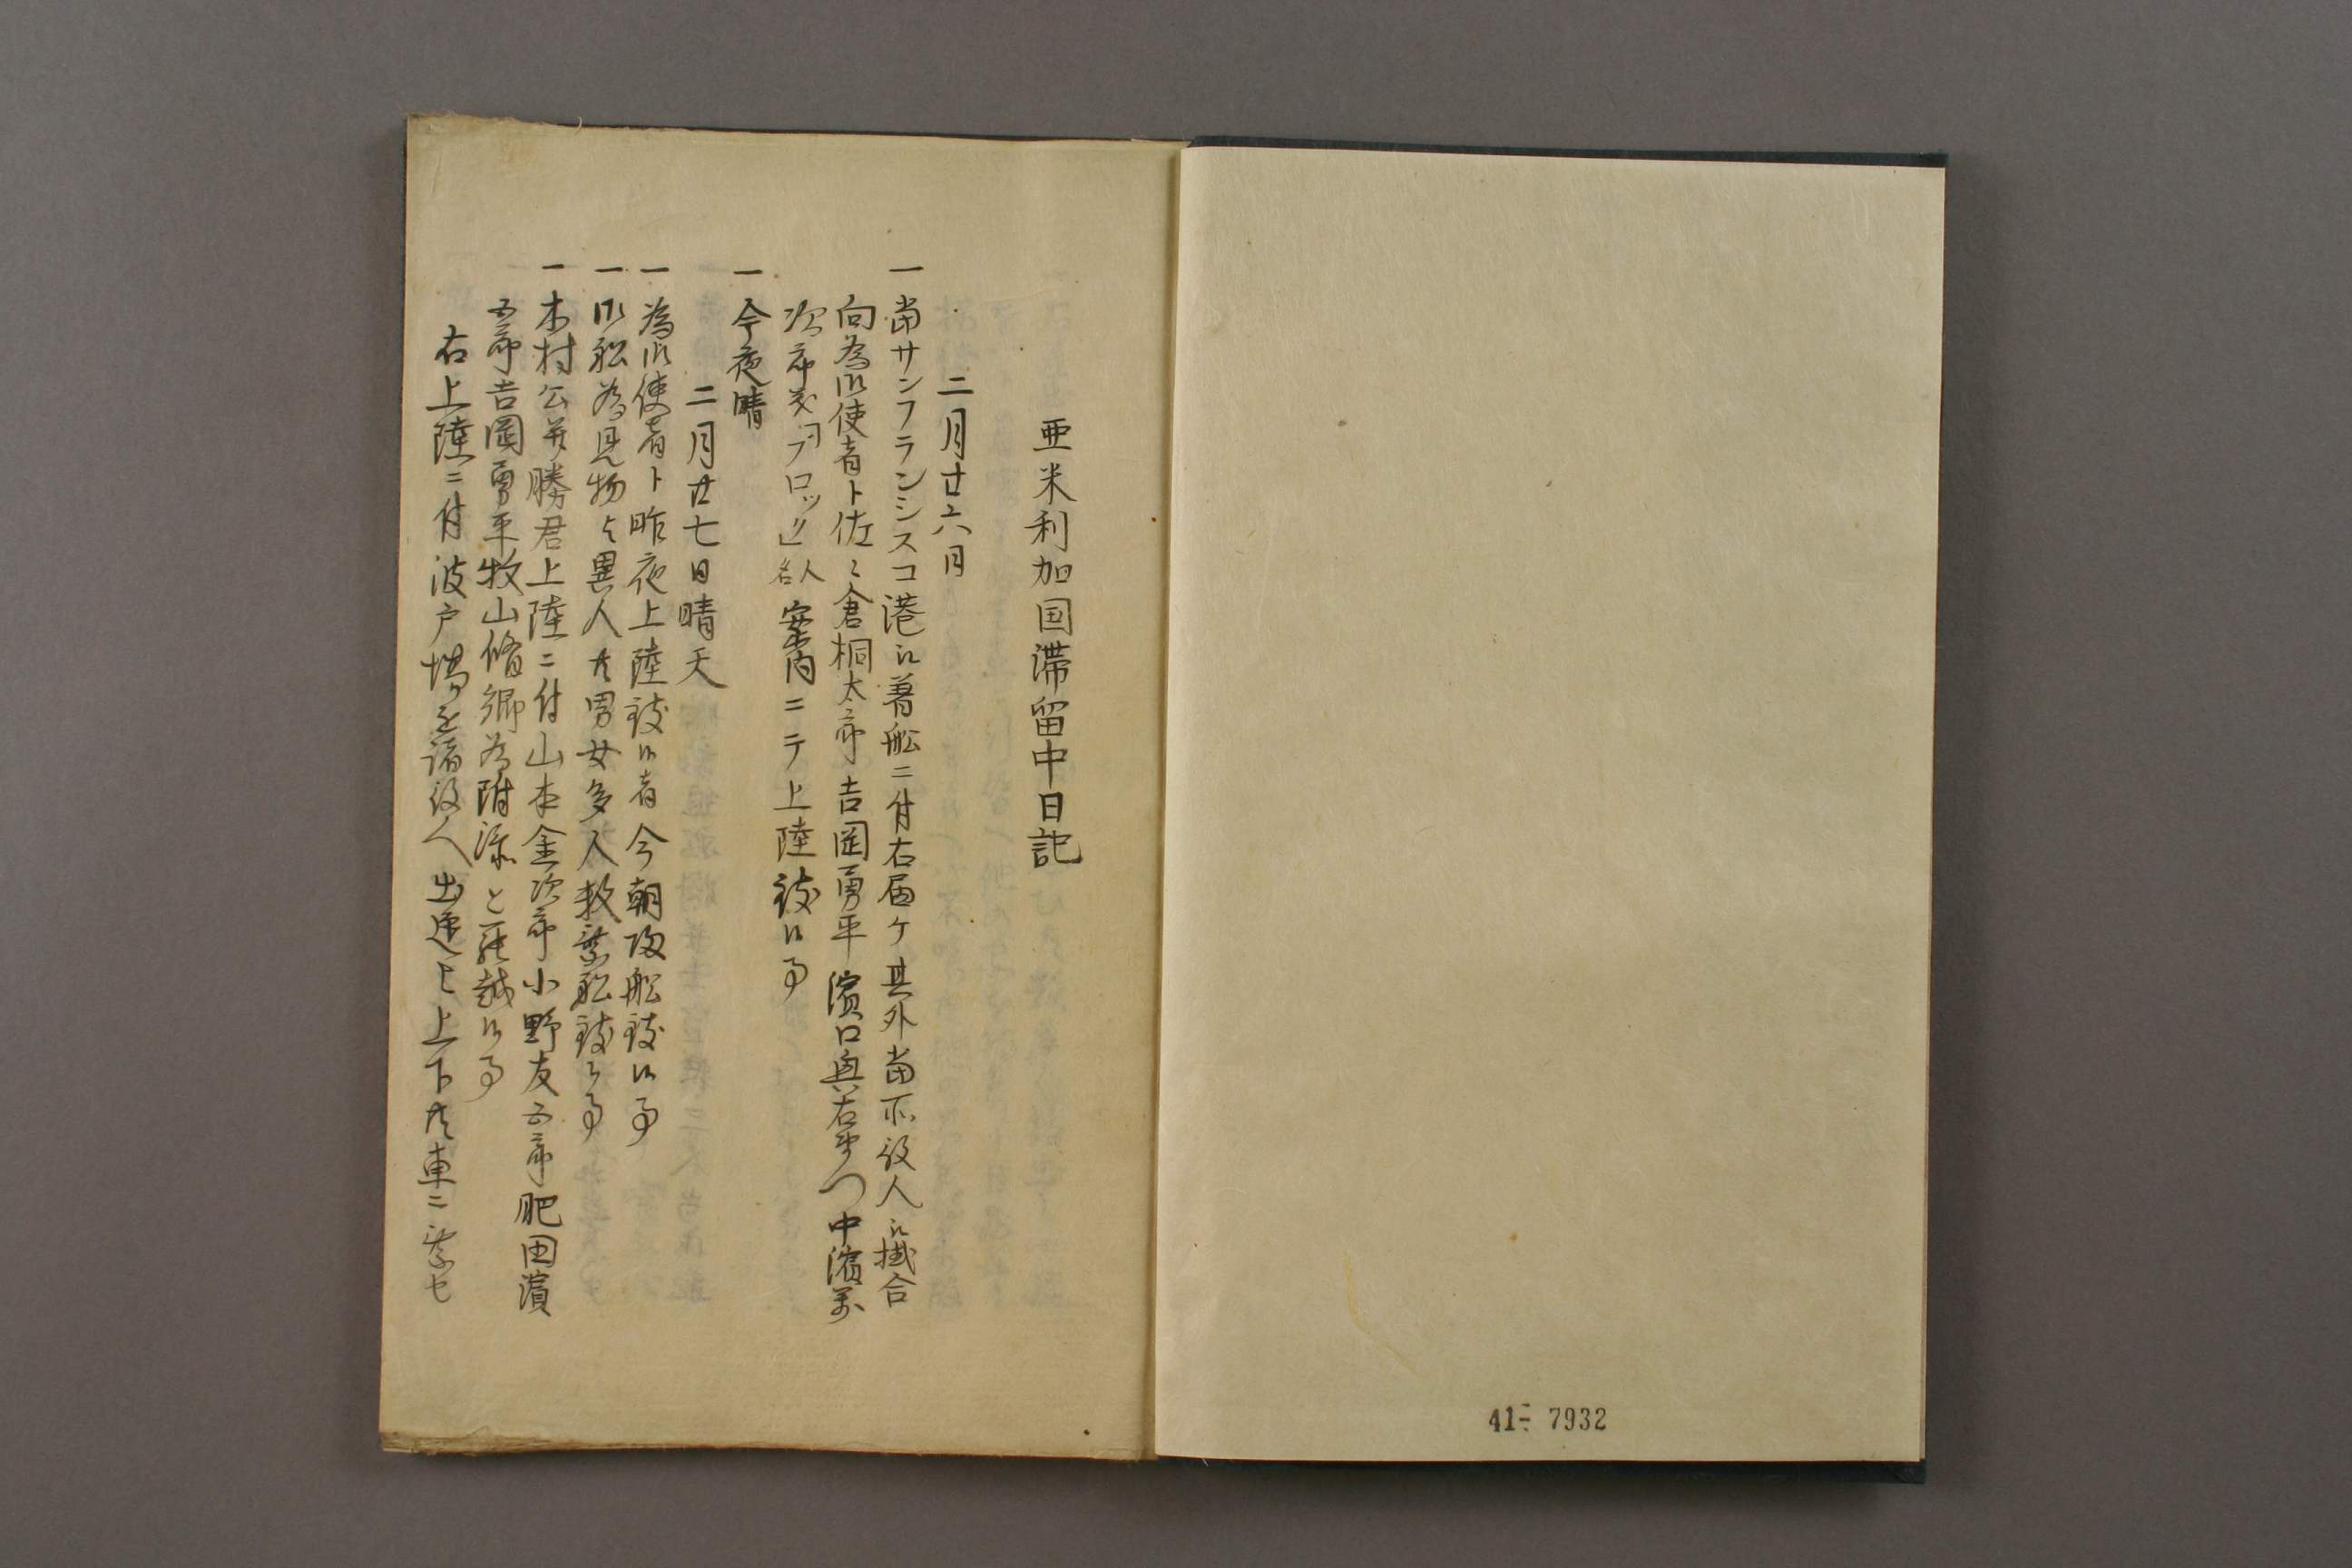 亜米利加国滞留中日記
二月廿六日
一 当サンフランシスコ港江着船ニ付右届ケ其外当所役人江掛合
向為御使者ト佐々倉桐太郎吉岡勇平濱口興右衛門中濱万
次郎義「ブロック」人名案内ニテ上陸致候事
一 今夜晴
二月廿七日晴天
一 為御使者ト昨夜上陸致候者今朝帰船致候事
一 御船為見物と異人共男女多人数乗船致候事
一 木村公并勝君上陸ニ付山本金次郎小野友五郎肥田濱
五郎吉岡勇平牧山脩卿為附添と罷越候事
右上陸ニ付波戸場迄諸役人出迎ヒ上下共車ニ乗セ
41-7932